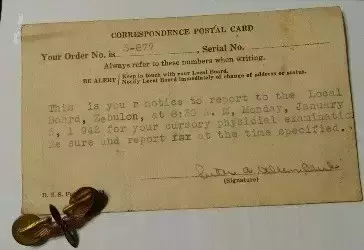 CORRESPONDENCE POSTAL CARD
Your Order No. is S-879, Serial No.
Always refer to these numbers when writing.
BE ALERT { Keep in touch with your Local Board.
Notify Local Board immediately of change of address or status.
This is you r notice to report to the Local
Board, Zebulon, at 8:30 A. M, Monday, January
5, 1 942 for your cursory physicial examinatio
Be sure and report fsr at the time specified.
(Signature)
D. S. S.